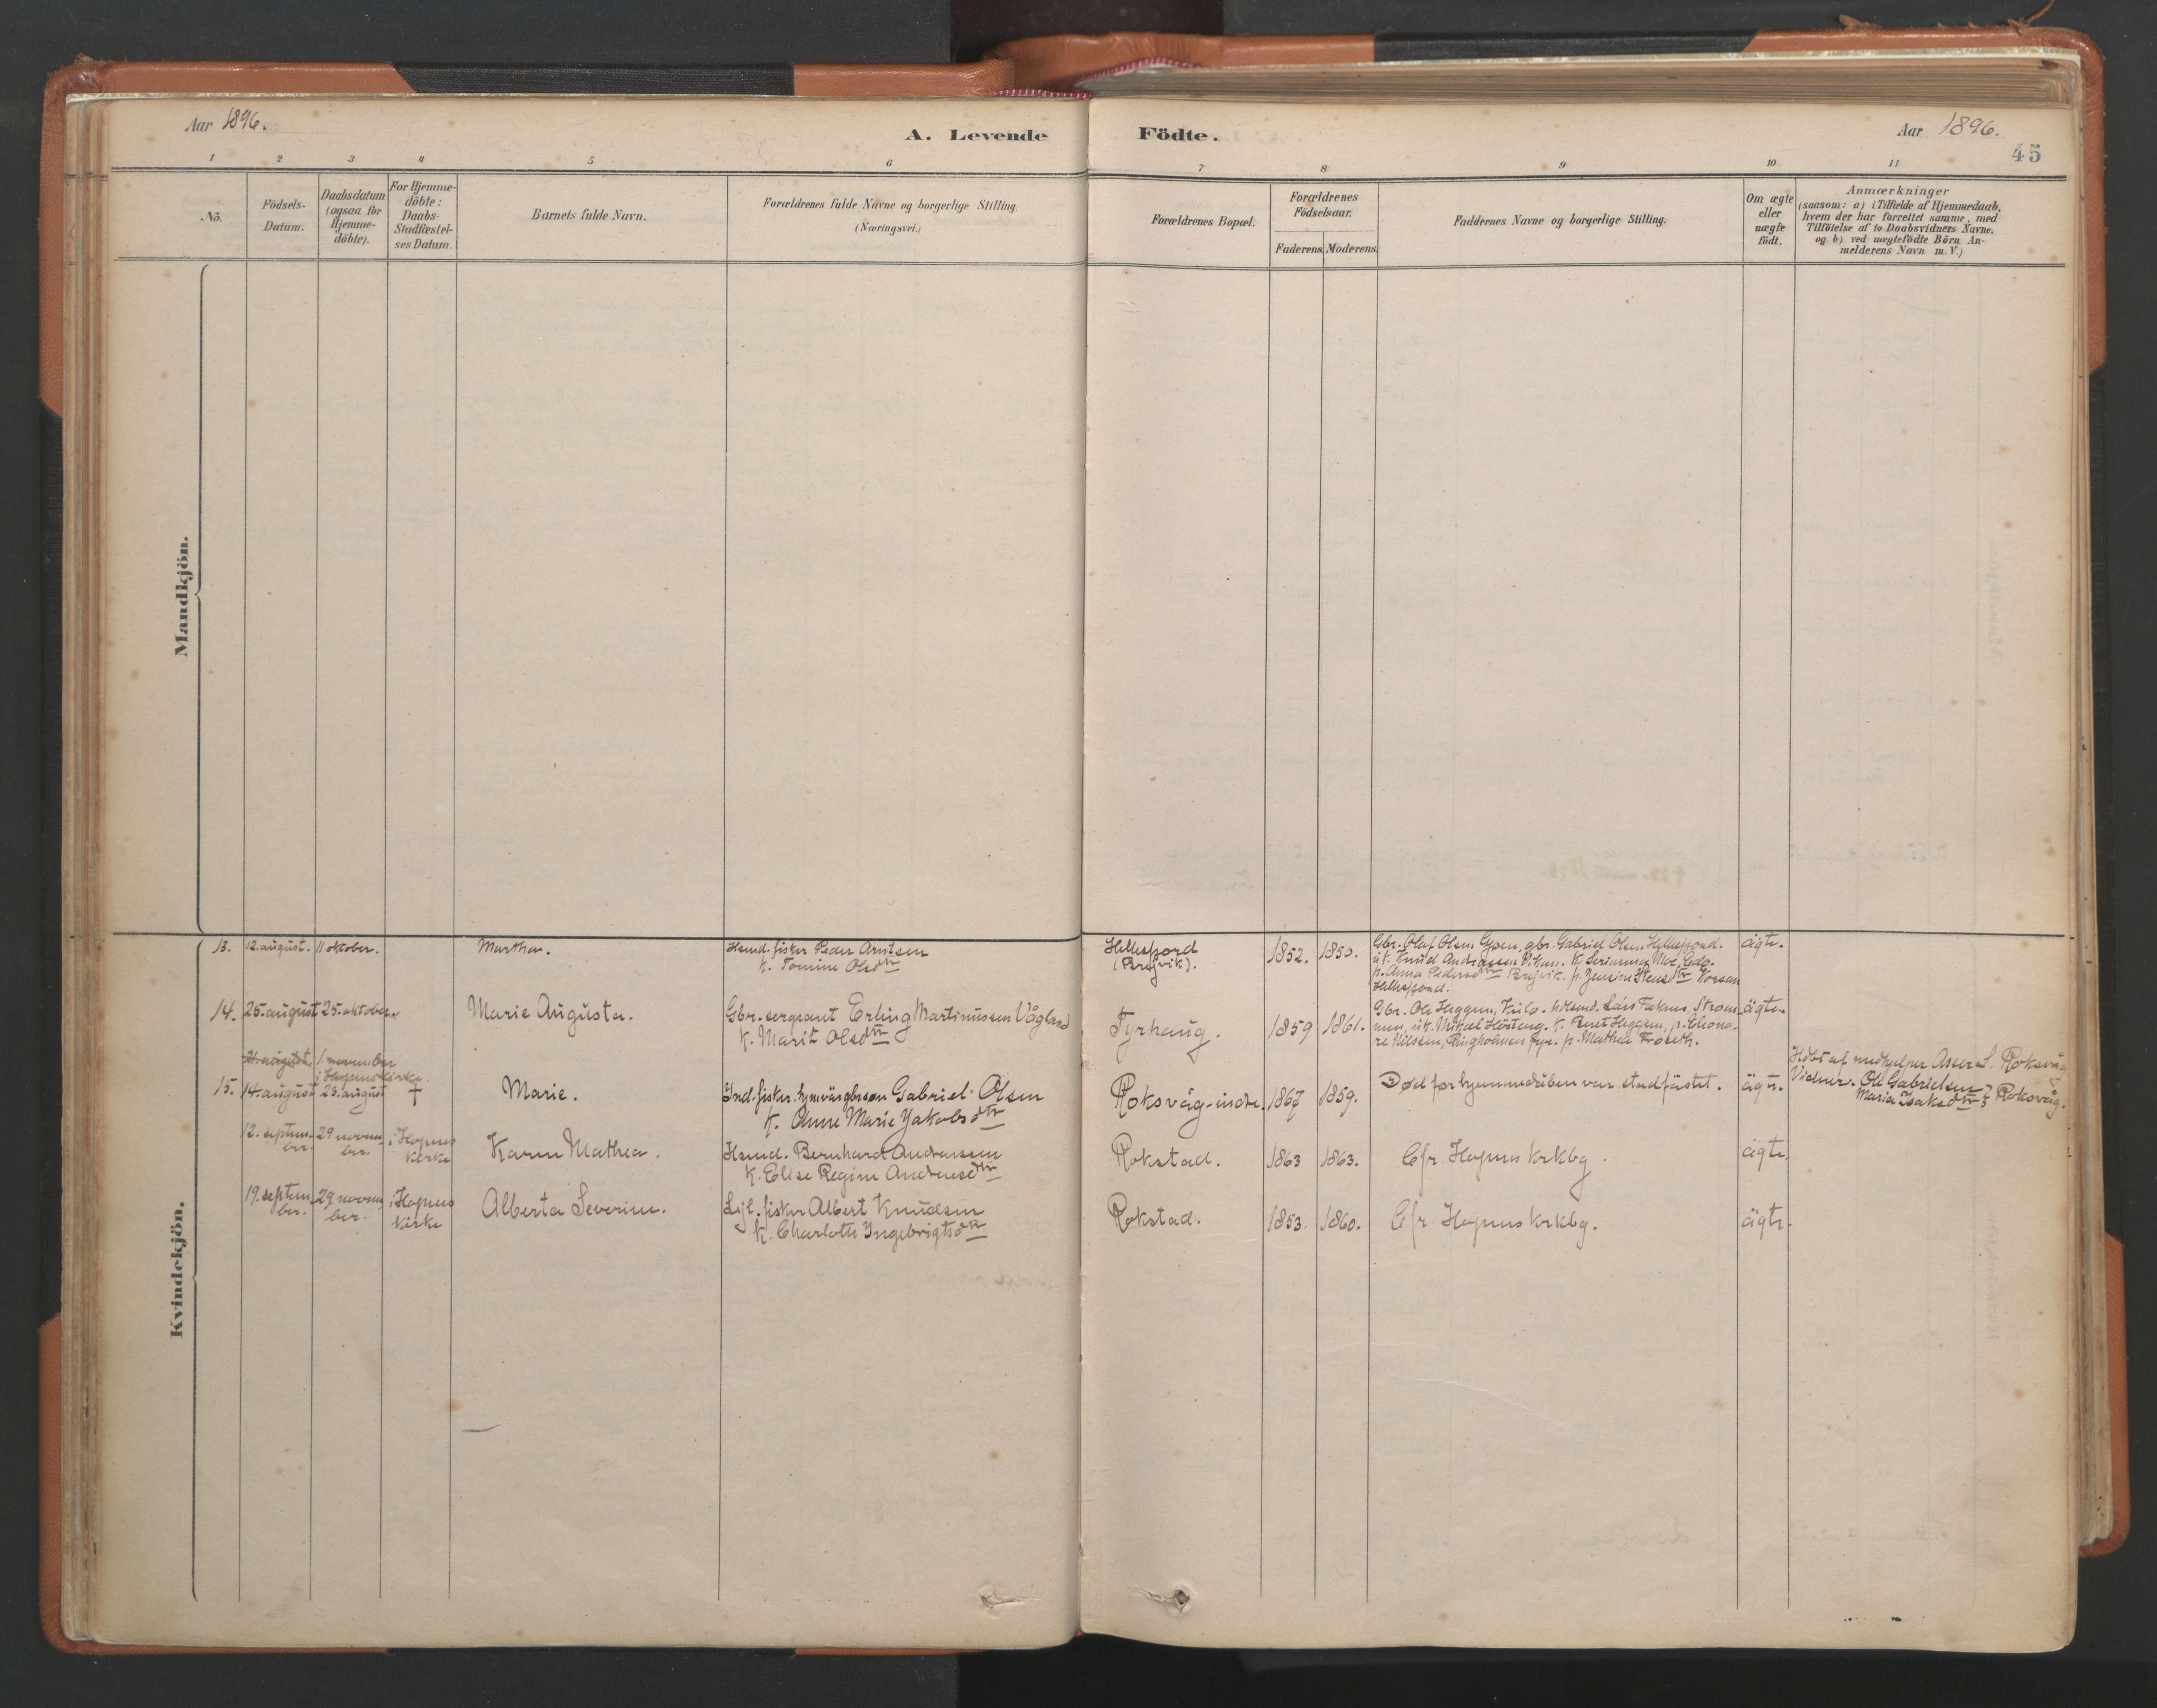 Aar 1896.
A. Levende Födte.
Aar 1896.
45
1 2 3 4 5 6 7 8 9 10 11
No.
Födsels-Datum.
Daabsdatum (ogsaa for Hjemme-döbte).
For Hjemme-döbte: Daabs-Stadfæstel-ses Datum.
Barnets fulde Navn.
Forældrenes fulde Navne og borgerlige Stilling.
(Næringsvei.)
Forældrenes Bopæl.
Forældrenes Födselsaar.
Faderens. Moderens.
Faddernes Navne og borgerlige Stilling.
Om ægte eller uægte födt.
Anmærkninger
(saasom: a) i Tilfælde af Hjemmedaab,
hvem der har forrettet samme, med
Tilföielse af to Daabsvidners Navne,
og b) ved uægtefödte Börn An-
melderens Navn m.V.)
Mandkjön.
Kvindekjön.
13. 12. august. 11 oktober. Martha.
Hsmd. fisker Peder Arntsen
K. Tomine Olsdtr
Hellesfjord
(Brejvik).
1852. 1850.
Gbr. Olaf Olsen Gjøen, gbr. Gabriel Olsen, Hellesfjord.
uk. Knud Andreassen Vikan. K.
p. Anna Pedersdtr Brejvik. p.
Hellesfjord.
ägte.
14. 25. august 25. oktober. Marie Augusta.
Gbr. sergeant Erling Martinussen Vågland
K. Marit Olsdtr
Tyrhaug.
1859 1861.
Gbr. Ole Heggem,
men, uk. Mikael K. Beret Heggem, p.
re Nilssen, Ringholmen fyr. p. Mathea
ägte.
21. august 1. november
i Hopens kirke.
15. 14. august 23. august † Marie.
Ind. fisker. hjemv. gbrsøn Gabriel Olsen
K. Anne Marie Jakobsdtr
Roksvåg-indre.
1867 1859.
Død før hjemmedåben var stadfästet.
ägte.
Hdbt af medhjelper Asser L. Roksvåg
Vidner. Ole Gabrielsen
Maria Isaksdtr } Roksvåg.
12. septem-
ber.
29 novem-
ber.
i Hopens
kirke
Karen Mathea.
Hsmd. Bernhard Andreassen
K. Elise Regine Andreasdtr
Rokstad.
1863 1863.
Cfr. Hopens krkbg.
ägte.
19. septem-
ber.
29 novem-
ber.
i Hopens
kirke
Alberta Severine.
Lejl. fisker Albert Knudsen
K. Charlotte Ingebrigtsdtr
Rokstad.
1853. 1860.
Cfr. Hopens krkbg.
ägte.